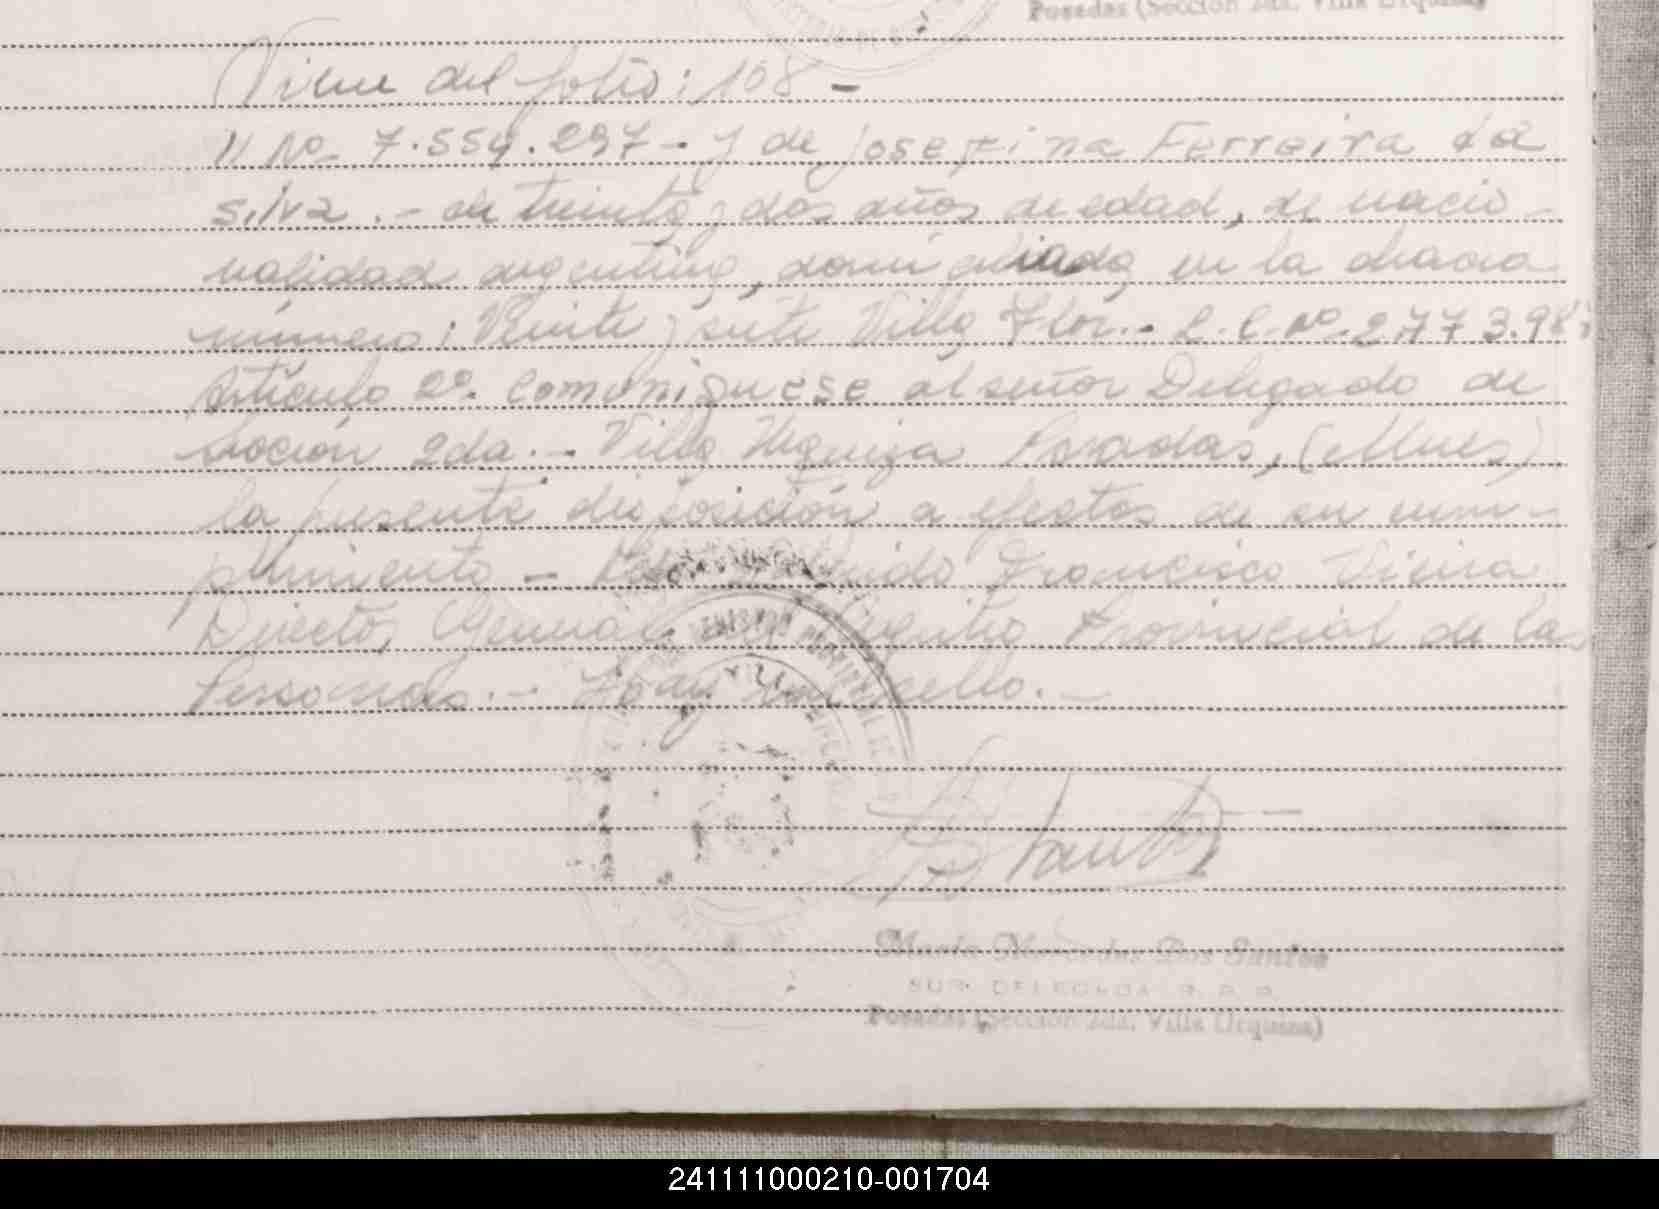 Posadas (Sección 2da. Villa Urquiza)
Viene del folio: 108 -
// No 7.554.297 - y de Josefina Ferreira da
Silva .- de treinta y dos años de edad, de nacio
nalidad argentina, domiciliada en la chacra
número: Veinte y siete Villa Flor.- L.C. Nº 2.773.98
Artículo 2º. Comuniquese al señor Delegado de
Sección 2da.- Villa Urquiza Posadas, (Mnes)
la presente disposición a efectos de su cum-
plimiento - Francisco Vieira
Director General Registro Provincial de las
Personas.-
María Mercedes Dos Santos
SUB DELEGADA R. P. P.
Posadas (Sección 2da. Villa Urquiza)
241111000210-001704